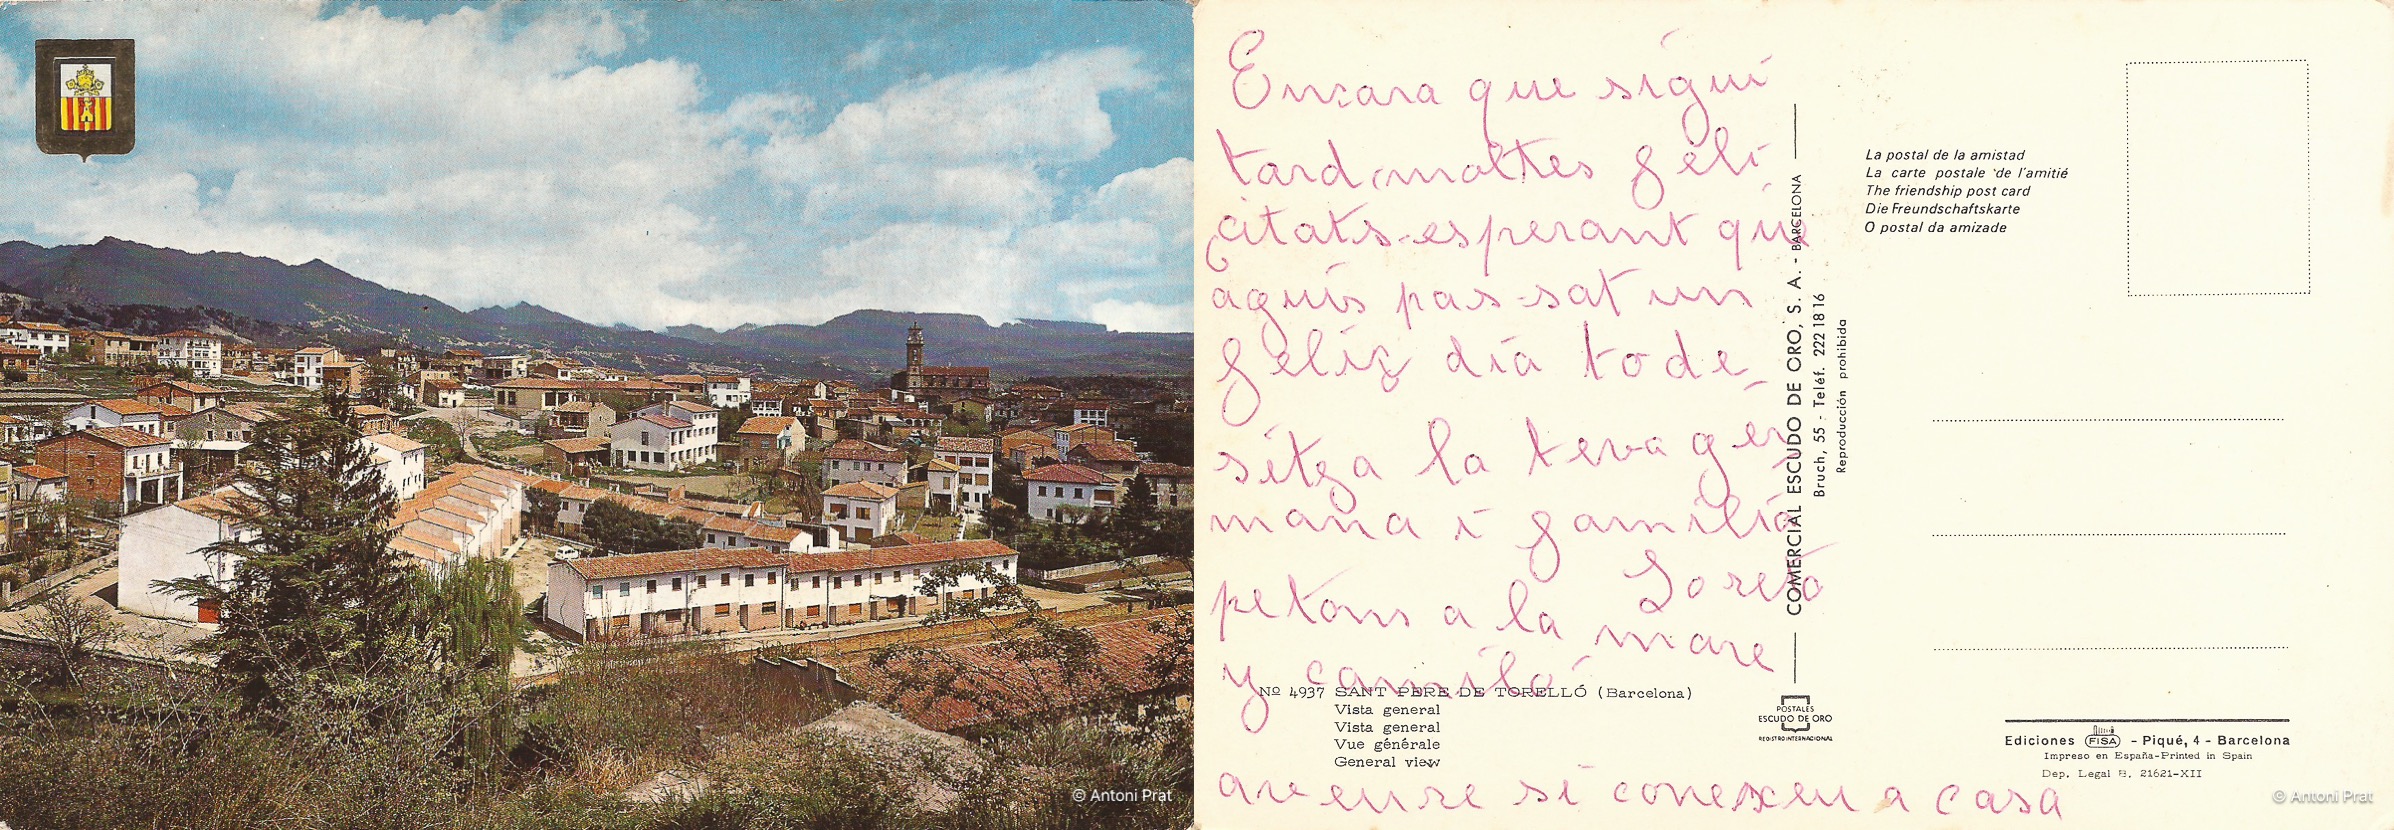 © Antoni Prat
Encara que sigui
tard, moltes feli
citats-esperant que
aguis pas-sat un
feliz dia to de
sitga la teva ger
mana i familia
Loreto
petons a la mare
y camilo
aveure si conexeu a casa
Nº 4937 SANT PERE DE TORELLÓ (Barcelona)
Vista general
Vista general
Vue générale
General view
COMERCIAL ESCUDO DE ORO, S. A. - BARCELONA
Bruch, 55 - Teléf. 222 18 16
Reproducción prohibida
POSTALES
ESCUDO DE ORO
REGISTRO INTERNACIONAL
La postal de la amistad
La carte postale de l'amitié
The friendship post card
Die Freundschaftskarte
O postal da amizade
Ediciones FISA - Piqué, 4 - Barcelona
Impreso en España-Printed in Spain
Dep. Legal B. 21621-XII
© Antoni Prat